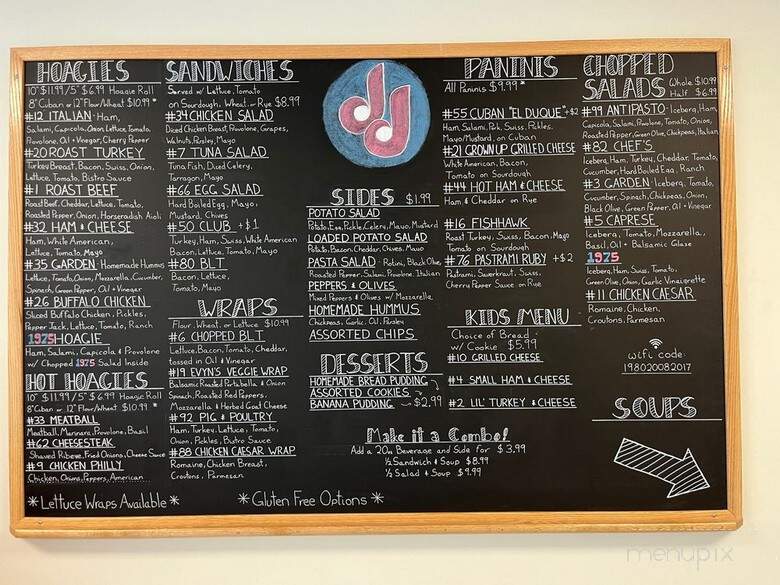 HOAGIES
10" $11.99/5" $6.99 Hoagie Roll
8" Cuban or 12" Flour/Wheat $10.99*
#12 ITALIAN - Ham,
Salami, Capicola, Onion, Lettuce, Tomato,
Provolone, Oil + Vinegar, Cherry Pepper
#20 ROAST TURKEY
Turkey Breast, Bacon, Swiss, Onion,
Lettuce, Tomato, Bistro Sauce
#1 ROAST BEEF
Roast Beef, Cheddar, Lettuce, Tomato,
Roasted Pepper, Onion, Horseradish Aioli
#32 HAM & CHEESE
Ham, White American,
Lettuce, Tomato, Mayo
#35 GARDEN Homemade Hummus
Lettuce, Tomato, Onion, Mozzarella, Cucumber,
Spinach, Green Pepper, Oil + Vinegar
#26 BUFFALO CHICKEN
Sliced Buffalo Chicken, Pickles,
Pepper Jack, Lettuce, Tomato, Ranch
1975 HOAGIE
Ham, Salami, Capicola & Provolone
w/ Chopped 1975 Salad Inside
HOT HOAGIES
10" $11.99/5" $6.99 Hoagie Roll
8" Cuban or 12" Flour/Wheat $10.99*
#33 MEATBALL
Meatball, Marinara, Provolone, Basil
#62 CHEESESTEAK
Shaved Ribeye, Fried Onions, Cheese Sauce
#9 CHICKEN PHILLY
Chicken, Onions, Peppers, American
*Lettuce Wraps Available*
SANDWICHES
Served w/ Lettuce, Tomato
on Sourdough, Wheat, or Rye $8.99
#34 CHICKEN SALAD
Diced Chicken Breast, Provolone, Grapes,
Walnuts, Parsley, Mayo
#7 TUNA SALAD
Tuna Fish, Diced Celery,
Tarragon, Mayo
#66 EGG SALAD
Hard Boiled Egg, Mayo,
Mustard, Chives
#50 CLUB +$1
Turkey, Ham, Swiss, White American
Bacon, Lettuce, Tomato, Mayo
#80 BLT
Bacon, Lettuce,
Tomato, Mayo
WRAPS
Flour, Wheat, or Lettuce $10.99
#6 CHOPPED BLT
Lettuce, Bacon, Tomato, Cheddar,
tossed in Oil + Vinegar
#19 EVYN'S VEGGIE WRAP
Balsamic Roasted Portabella & Onion
Spinach, Roasted Red Peppers,
Mozzarella & Herbed Goat Cheese
#92 PIG & POULTRY
Ham, Turkey, Lettuce, Tomato,
Onion, Pickles, Bistro Sauce
#88 CHICKEN CAESAR WRAP
Romaine, Chicken Breast,
Croutons, Parmesan
*Gluten Free Options*
SIDES $1.99
POTATO SALAD
Potato, Egg, Pickle, Celery, Mayo, Mustard
LOADED POTATO SALAD
Potato, Bacon, Cheddar, Chives, Mayo
PASTA SALAD - Rotini, Black Olive,
Roasted Pepper, Salami, Provolone, Italian
PEPPERS & OLIVES
Mixed Peppers & Olives w/ Mozzarella
HOMEMADE HUMMUS
Chickpeas, Garlic, Oil, Parsley
ASSORTED CHIPS
DESSERTS
HOMEMADE BREAD PUDDING
ASSORTED COOKIES
BANANA PUDDING $2.99
Make it a Combo!
Add a 20oz Beverage and Side for $3.99
1/2 Sandwich & Soup $8.99
1/2 Salad & Soup $9.99
PANINIS
All Paninis $9.99*
#55 CUBAN "EL DUQUE" +$2
Ham, Salami, Pork, Swiss, Pickles,
Mayo/Mustard, on Cuban
#21 GROWN UP GRILLED CHEESE
White American, Bacon,
Tomato on Sourdough
#44 HOT HAM & CHEESE
Ham, & Cheddar on Rye
#16 FISHHAWK
Roast Turkey, Swiss, Bacon, Mayo
Tomato on Sourdough
#76 PASTRAMI RUBY +$2
Pastrami, Sauerkraut, Swiss,
Cherry Pepper Sauce on Rye
KIDS MENU
Choice of Bread
w/ Cookie $5.99
#10 GRILLED CHEESE
#4 SMALL HAM & CHEESE
#2 LIL' TURKEY & CHEESE
CHOPPED
SALADS Whole $10.99
Half $6.99
#99 ANTIPASTO - Iceberg, Ham,
Capicola, Salami, Provolone, Tomato, Onion,
Roasted Pepper, Green Olive, Chickpeas, Italian
#82 CHEF'S
Iceberg, Ham, Turkey, Cheddar, Tomato,
Cucumber, Hard Boiled Egg, Ranch
#3 GARDEN - Iceberg, Tomato,
Cucumber, Spinach, Chickpeas, Onion,
Black Olive, Green Pepper, Oil + Vinegar
#5 CAPRESE
Iceberg, Tomato, Mozzarella,
Basil, Oil + Balsamic Glaze
1975
Iceberg, Ham, Swiss, Tomato,
Green Olive, Onion, Garlic Vinaigrette
#11 CHICKEN CAESAR
Romaine, Chicken,
Croutons, Parmesan
wifi code
198020082017
SOUPS
menupix